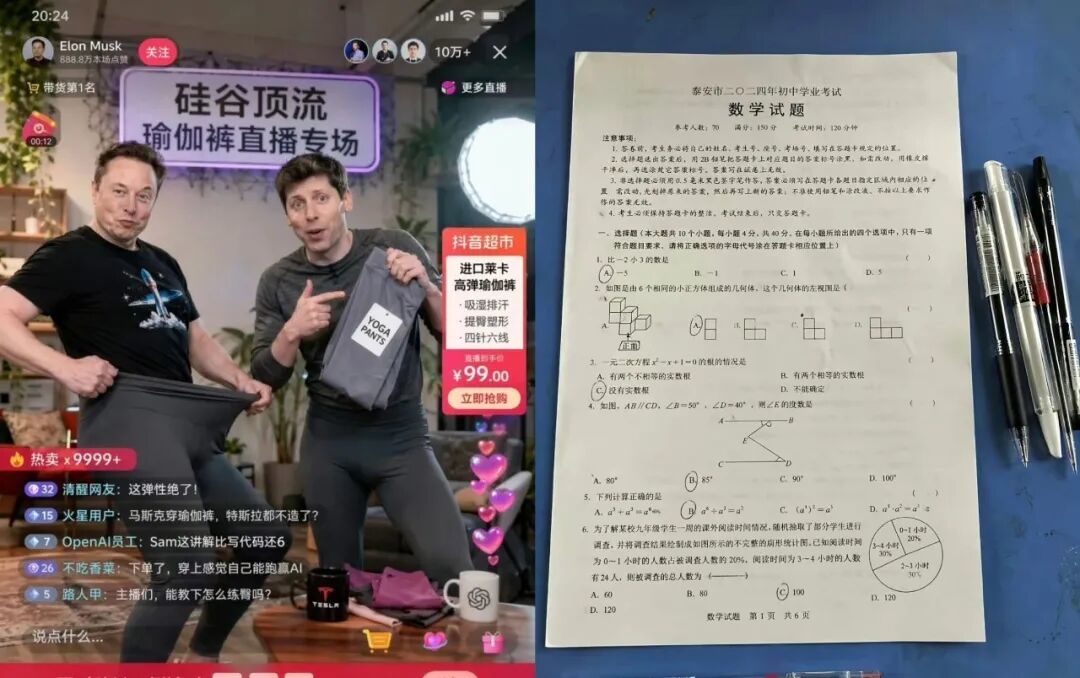 20:24
Elon Musk
888.8万本场点赞
关注
10万+
带货第1名
更多直播
00:12
硅谷顶流
瑜伽裤直播专场
YOGA
PANTS
抖音超市
进口莱卡
高弹瑜伽裤
·吸湿排汗
·提臀塑形
·四针六线
直播到手价
¥99.00
立即抢购
热卖 x9999+
32 清醒网友：这弹性绝了！
15 火星用户：马斯克穿瑜伽裤，特斯拉都不造了？
7 OpenAI员工：Sam这讲解比写代码还6
26 不吃香菜：下单了，穿上感觉自己能跑赢AI
5 路人甲：主播们，能教下怎么练臀吗？
TESLA
说点什么...
泰安市二〇二四年初中学业考试
数学试题
参考人数：70 满分：150分 考试时间：120分钟
注意事项：
1. 答卷前，考生务必将自己的姓名、考生号、座号、考场号、填写在答题卡规定的位置。
2. 选择题选出答案后，用2B铅笔把答题卡上对应题目的答案标号涂黑，如需改动，用橡皮擦
干净后，再选涂其它答案标号。答案写在试卷上无效。
3. 非选择题必须用0.5毫米黑色签字笔作答，答案必须写在答题卡各题目指定区域内相应的位
置
4. 考生必须保持答题卡的整洁，考试结束后，只交答题卡。
一、选择题（本大题共10个小题，每小题4分，共40分。在每小题所给出的四个选项中，只有一项
符合题目要求，请将正确选项的字母代号涂在答题卡相应位置上）
1. 比−2小3的数是 （ ）
A. −5 B. −1 C. 1 D. 5
2. 如图是由6个相同的小正方体组成的几何体，这个几何体的左视图是（ ）
A. A. C. D.
正面
3. 一元二次方程x²−x+1=0的根的情况是 （ ）
A. 有两个不相等的实数根 B. 有两个相等的实数根
C. 没有实数根 D. 不能确定
4. 如图，AB∥CD，∠B=50°，∠D=40°，则∠E的度数是 （ ）
A B
E
C D
A. 80° B. 85° C. 90° D. 100°
5. 下列计算正确的是 （ ）
A. a³+a³=a⁶ B. a⁶÷a³=a² C. (a³)²=a⁵ D. a²·a²=a²
6. 为了解某校九年级学生一周的课外阅读时间情况，随机抽取了部分学生进行
调查，并将调查结果绘制成如图所示的不完整的扇形统计图。已知阅读时间
为0～1小时的人数占被调查人数的20%，阅读时间为3～4小时的人数
有24人，则被调查的总人数为（ ）
0~1小时
20%
3~4小时
30%
2~3小时
30%
A. 60 B. 80 C. 100 D. 120
D. 120
数学试题 第1页 共6页